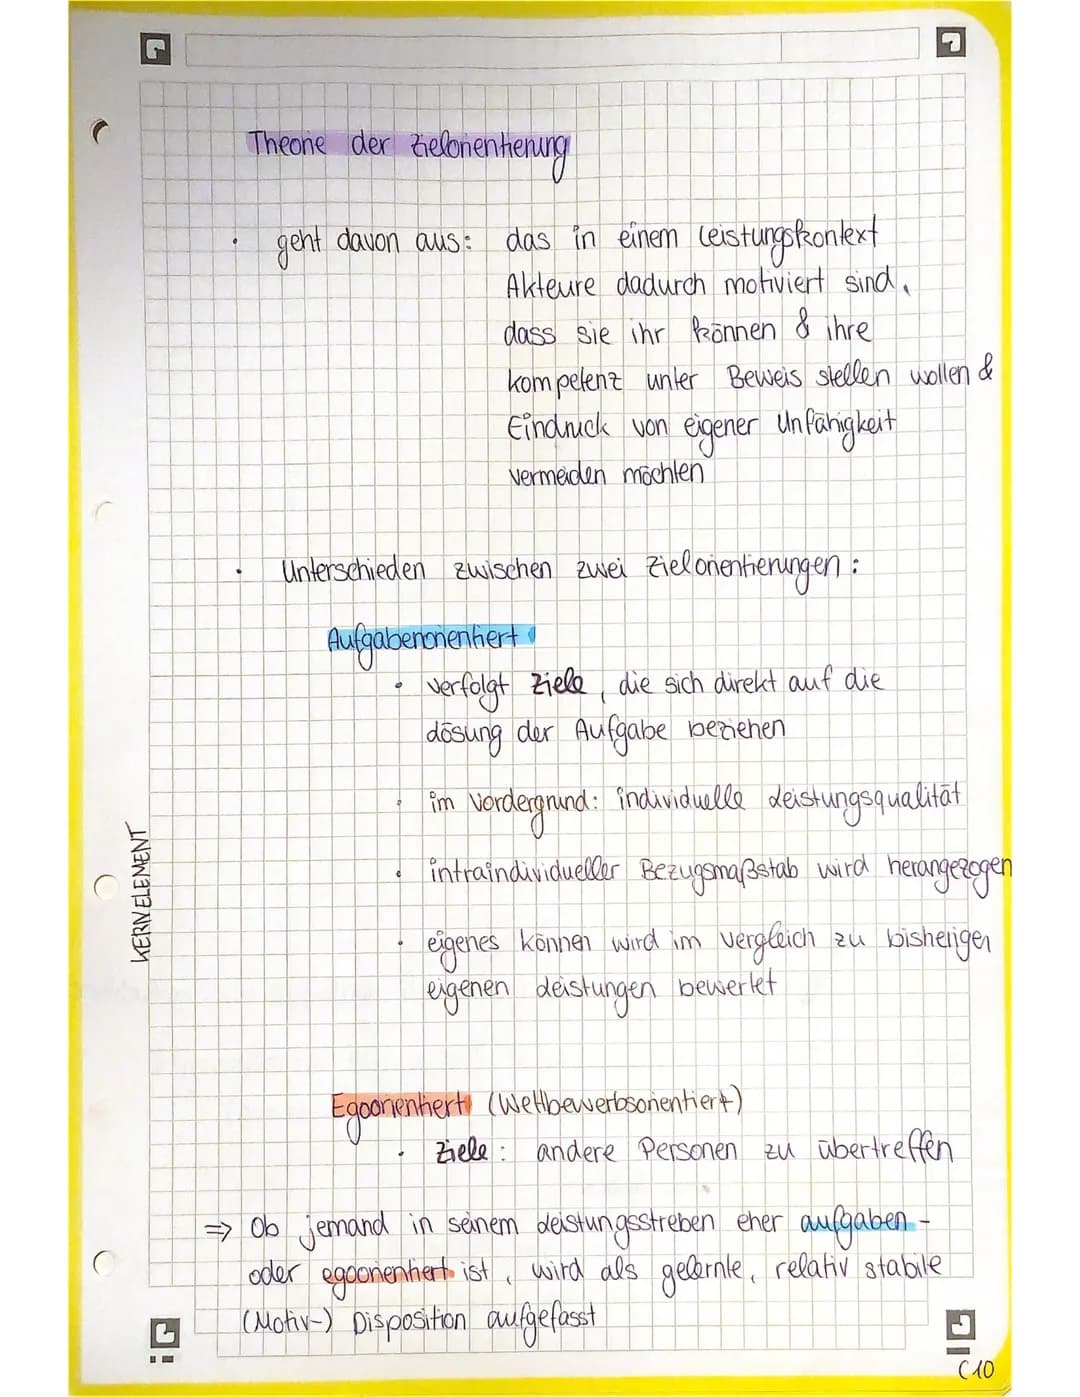 Theorie der Zielorientierung
• geht davon aus: das in einem Leistungskontext
Akteure dadurch motiviert sind,
dass sie ihr können & ihre
kompetenz unter Beweis stellen wollen &
Eindruck von eigener Unfähigkeit
vermeiden möchten
• Unterschieden zwischen zwei Zielorientierungen:
Aufgabenorientiert
• verfolgt Ziele, die sich direkt auf die
Lösung der Aufgabe beziehen
• im Vordergrund: individuelle Leistungsqualität
• intraindividueller Bezugsmaßstab wird herangezogen
• eigenes können wird im vergleich zu bisherigen
eigenen Leistungen bewertet
KERNELEMENT
Egoorientiert (Wettbewerbsorientiert)
• Ziele: andere Personen zu übertreffen
⇒ Ob jemand in seinem Leistungsstreben eher aufgaben-
oder egoorientiert ist, wird als gelernte, relativ stabile
(Motiv-) Disposition aufgefasst
C10